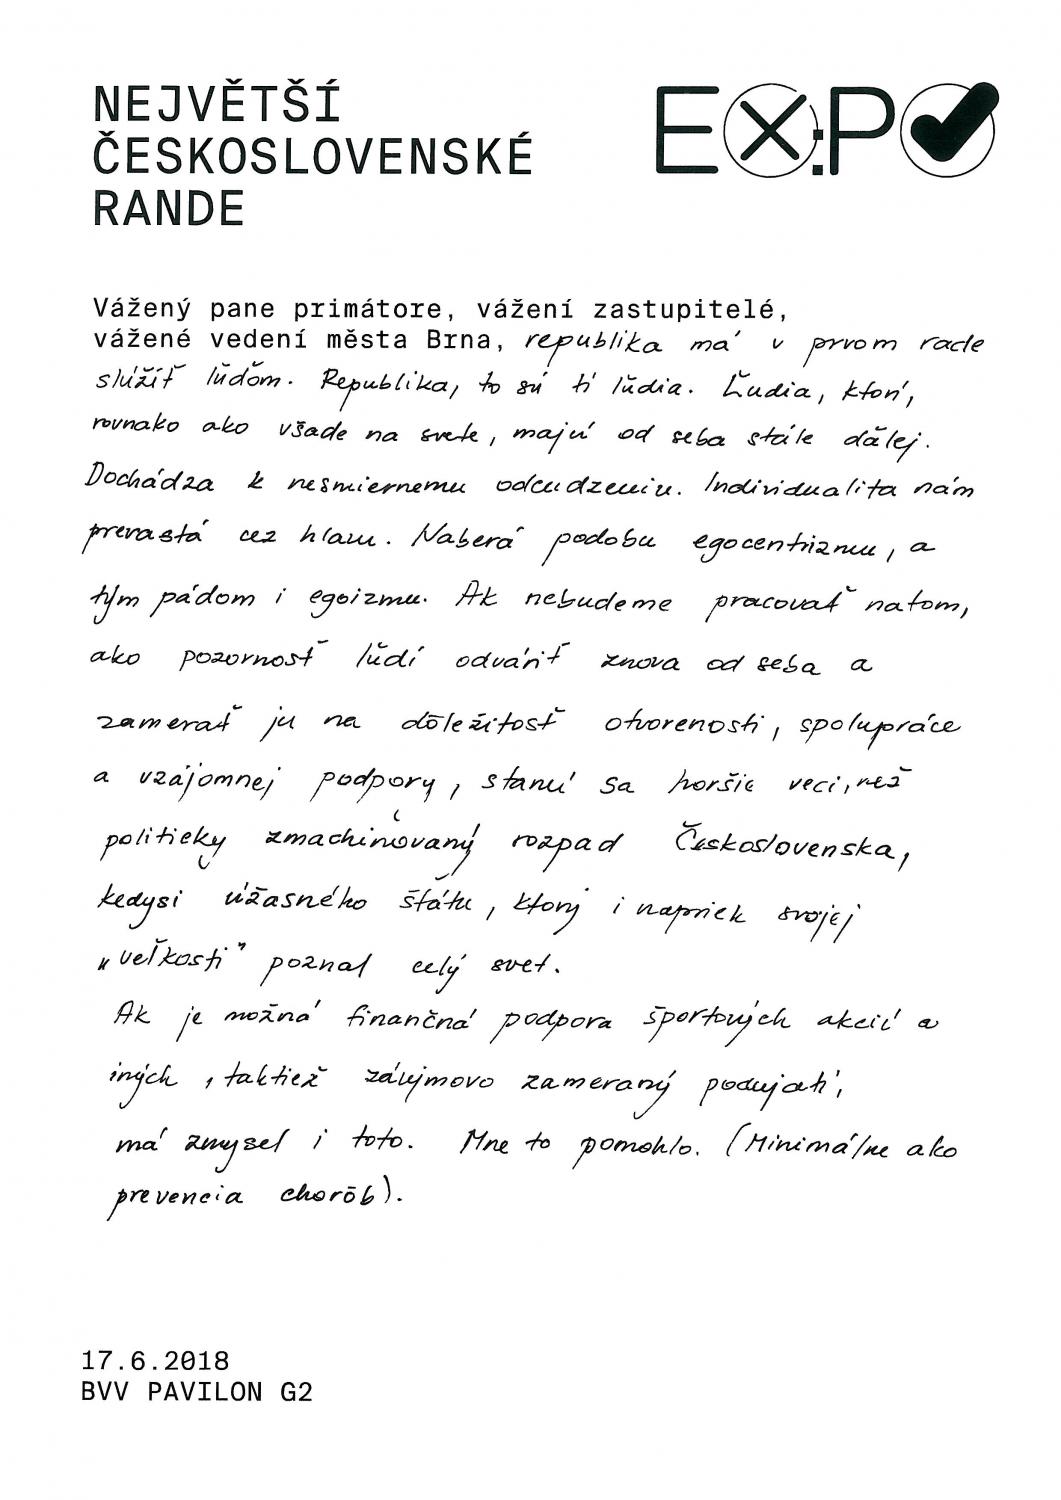 NEJVĚTŠÍ
ČESKOSLOVENSKÉ
RANDE
EX:P✔
Vážený pane primátore, vážení zastupitelé,
vážené vedení města Brna, republika má v prvom rade
slúžiť ľuďom. Republika, to sú tí ľudia. Ľudia, ktorí,
rovnako ako všade na svete, majú od seba stále ďalej.
Dochádza k nesmiernemu odcudzeniu. Individualita nám
prerastá cez hlavu. Naberá podobu egocentrizmu, a
tým pádom i egoizmu. Ak nebudeme pracovať na tom,
ako pozornosť ľudí odvátiť znova od seba a
zamerať ju na dôležitosť otvorenosti, spolupráce
a vzájomnej podpory, stanú sa horšie veci, než
politicky zmachinovaný rozpad Československa,
kedysi úžasného štátu, ktorý i napriek svojej
„veľkosti" poznal celý svet.
Ak je možná finančná podpora športových akcií a
iných, taktiež záujmovo zameraný podujatí,
má zmysel i toto. Mne to pomohlo. (Minimálne ako
prevencia chorôb).
17.6.2018
BVV PAVILON G2